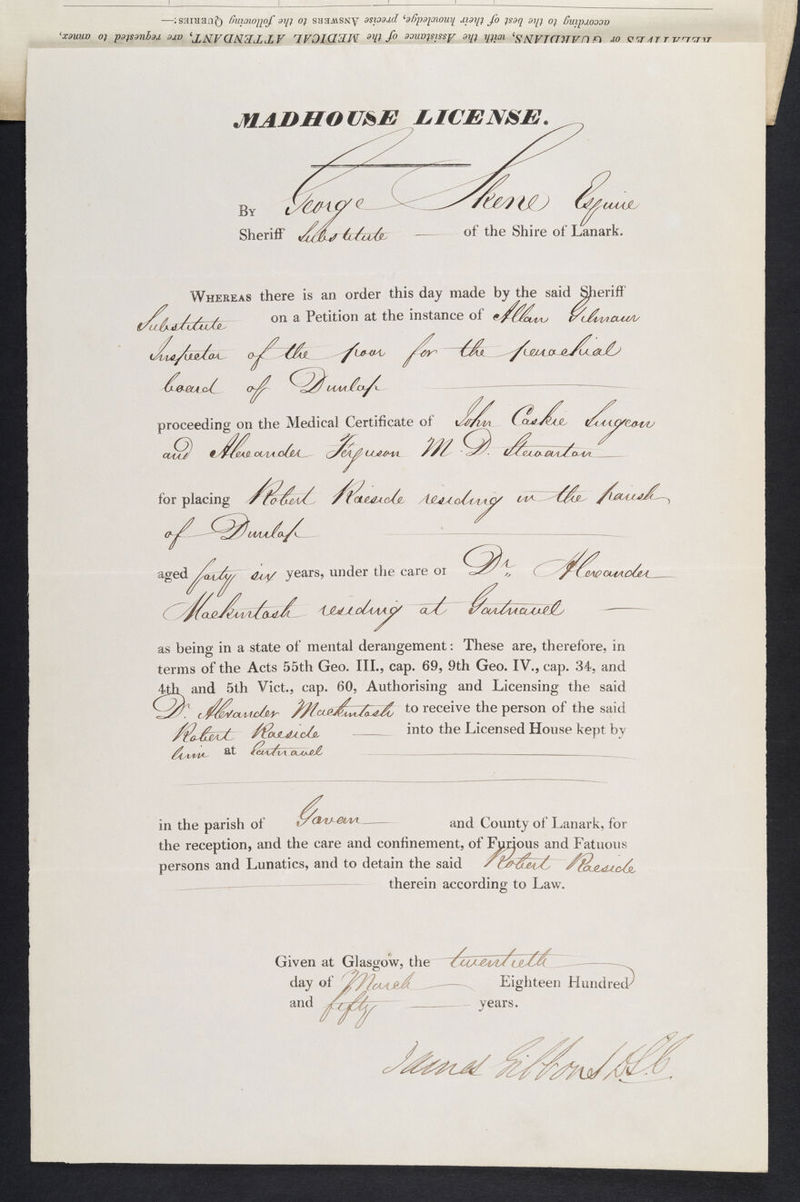 RELATIVES or GUARDIANS, with the Assistance of the MEDICAL ATTENDANT, are requested to annex,
according to the best of their knowledge, precise ANSWERS to the following QUERIES:—
MADHOUSE LICENSE.
By George Skene Esquire
Sheriff Substitute of the Shire of Lanark.
WHEREAS there is an order this day made by the said Sheriff
Substitute on a Petition at the instance of Allan Gilmour
Inspector of the poor for the parochial
board of Dunlop
proceeding on the Medical Certificate of John Caskie Surgeon
and Alexander Ferguson M.D. Stewarton
for placing Robert Raeside residing in the parish
of Dunlop
aged forty six years, under the care of Dr. Alexander
Mackintosh residing at Gartnavel
as being in a state of mental derangement: These are, therefore, in
terms of the Acts 55th Geo. III., cap. 69, 9th Geo. IV., cap. 34, and
4th and 5th Vict., cap. 60, Authorising and Licensing the said
Dr. Alexander Mackintosh to receive the person of the said
Robert Raeside into the Licensed House kept by
him at Gartnavel
in the parish of Govan and County of Lanark, for
the reception, and the care and confinement, of Furious and Fatuous
persons and Lunatics, and to detain the said Robert Raeside
therein according to Law.
Given at Glasgow, the twentieth
day of March Eighteen Hundred
and fifty years.
James Gibbons